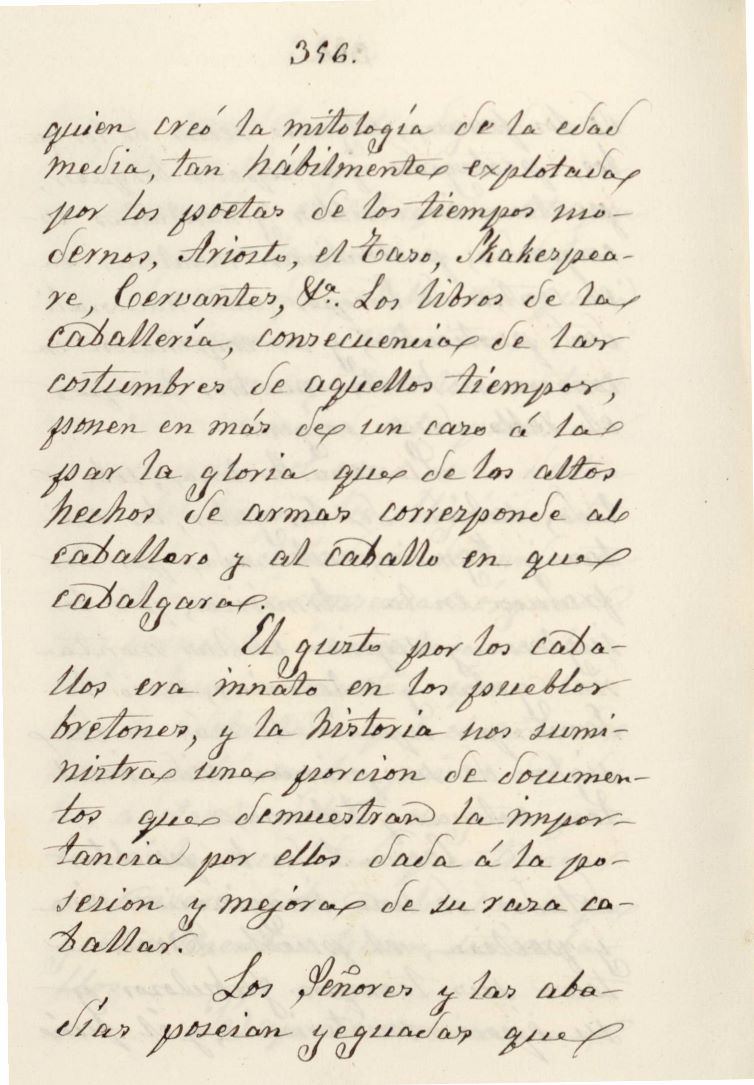 396.
quien creó la mitología de la edad
media, tan hábilmente explotada
por los poetas de los tiempos mo-
dernos, Ariosto, el Taso, Skakespea-
re, Cervantes, &a. Los libros de la
caballería, consecuencia de las
costumbres de aquellos tiempos,
ponen en más de un caso á la
par la gloria que de los altos
hechos de armas corresponde al
caballero y al caballo en que
cabalgara.
El gusto por los caba-
llos era innato en los pueblos
bretones, y la historia nos sumi-
nistra una porcion de documen-
tos que demuestran la impor-
tancia por ellos dada á la po-
sesion y mejora de su raza ca-
ballar.
Los Señores y las aba-
días poseian yeguadas que